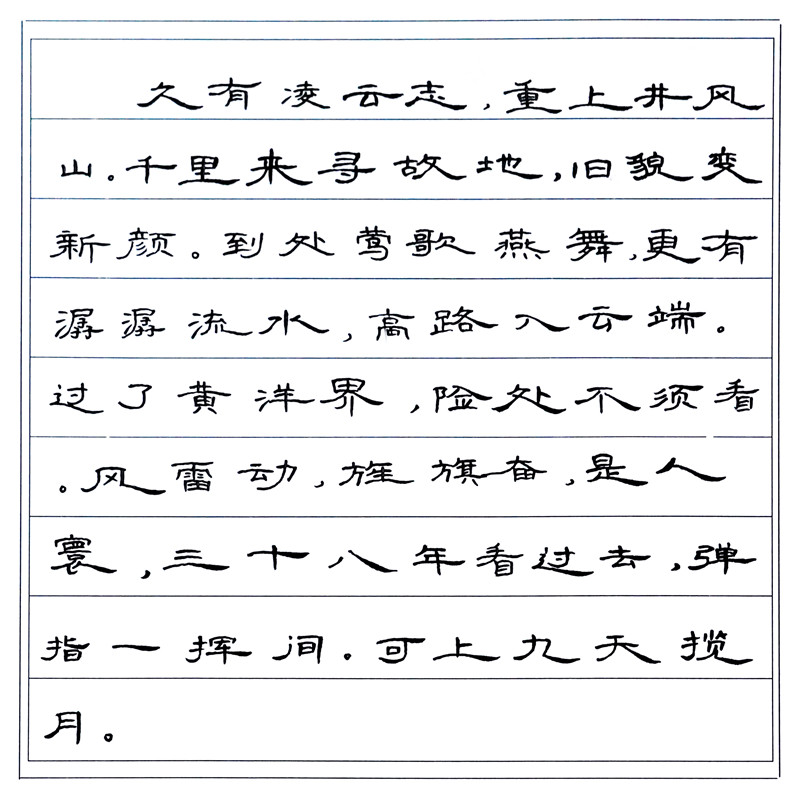 久有凌云志,重上井风
山。千里来寻故地,旧貌变
新颜。到处莺歌燕舞,更有
潺潺流水,高路入云端。
过了黄洋界,险处不须看
。风雷动,旌旗奋,是人
寰,三十八年看过去,弹
指一挥间.可上九天揽
月。